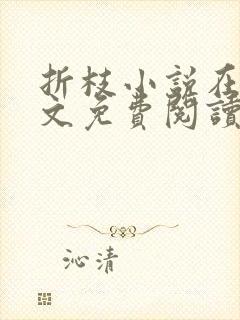 折枝小説在
文免費閱讀
沁清